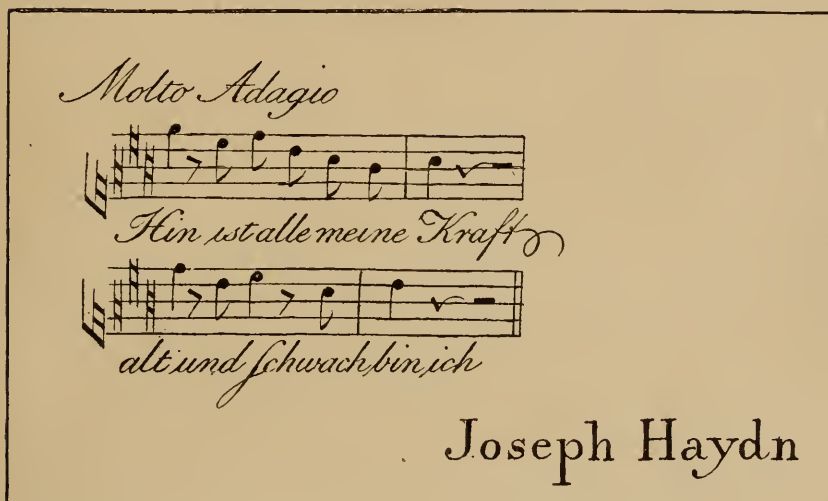 Molto Adagio
Hin ist alle meine Kraft
alt und schwach bin ich
Joseph Haydn